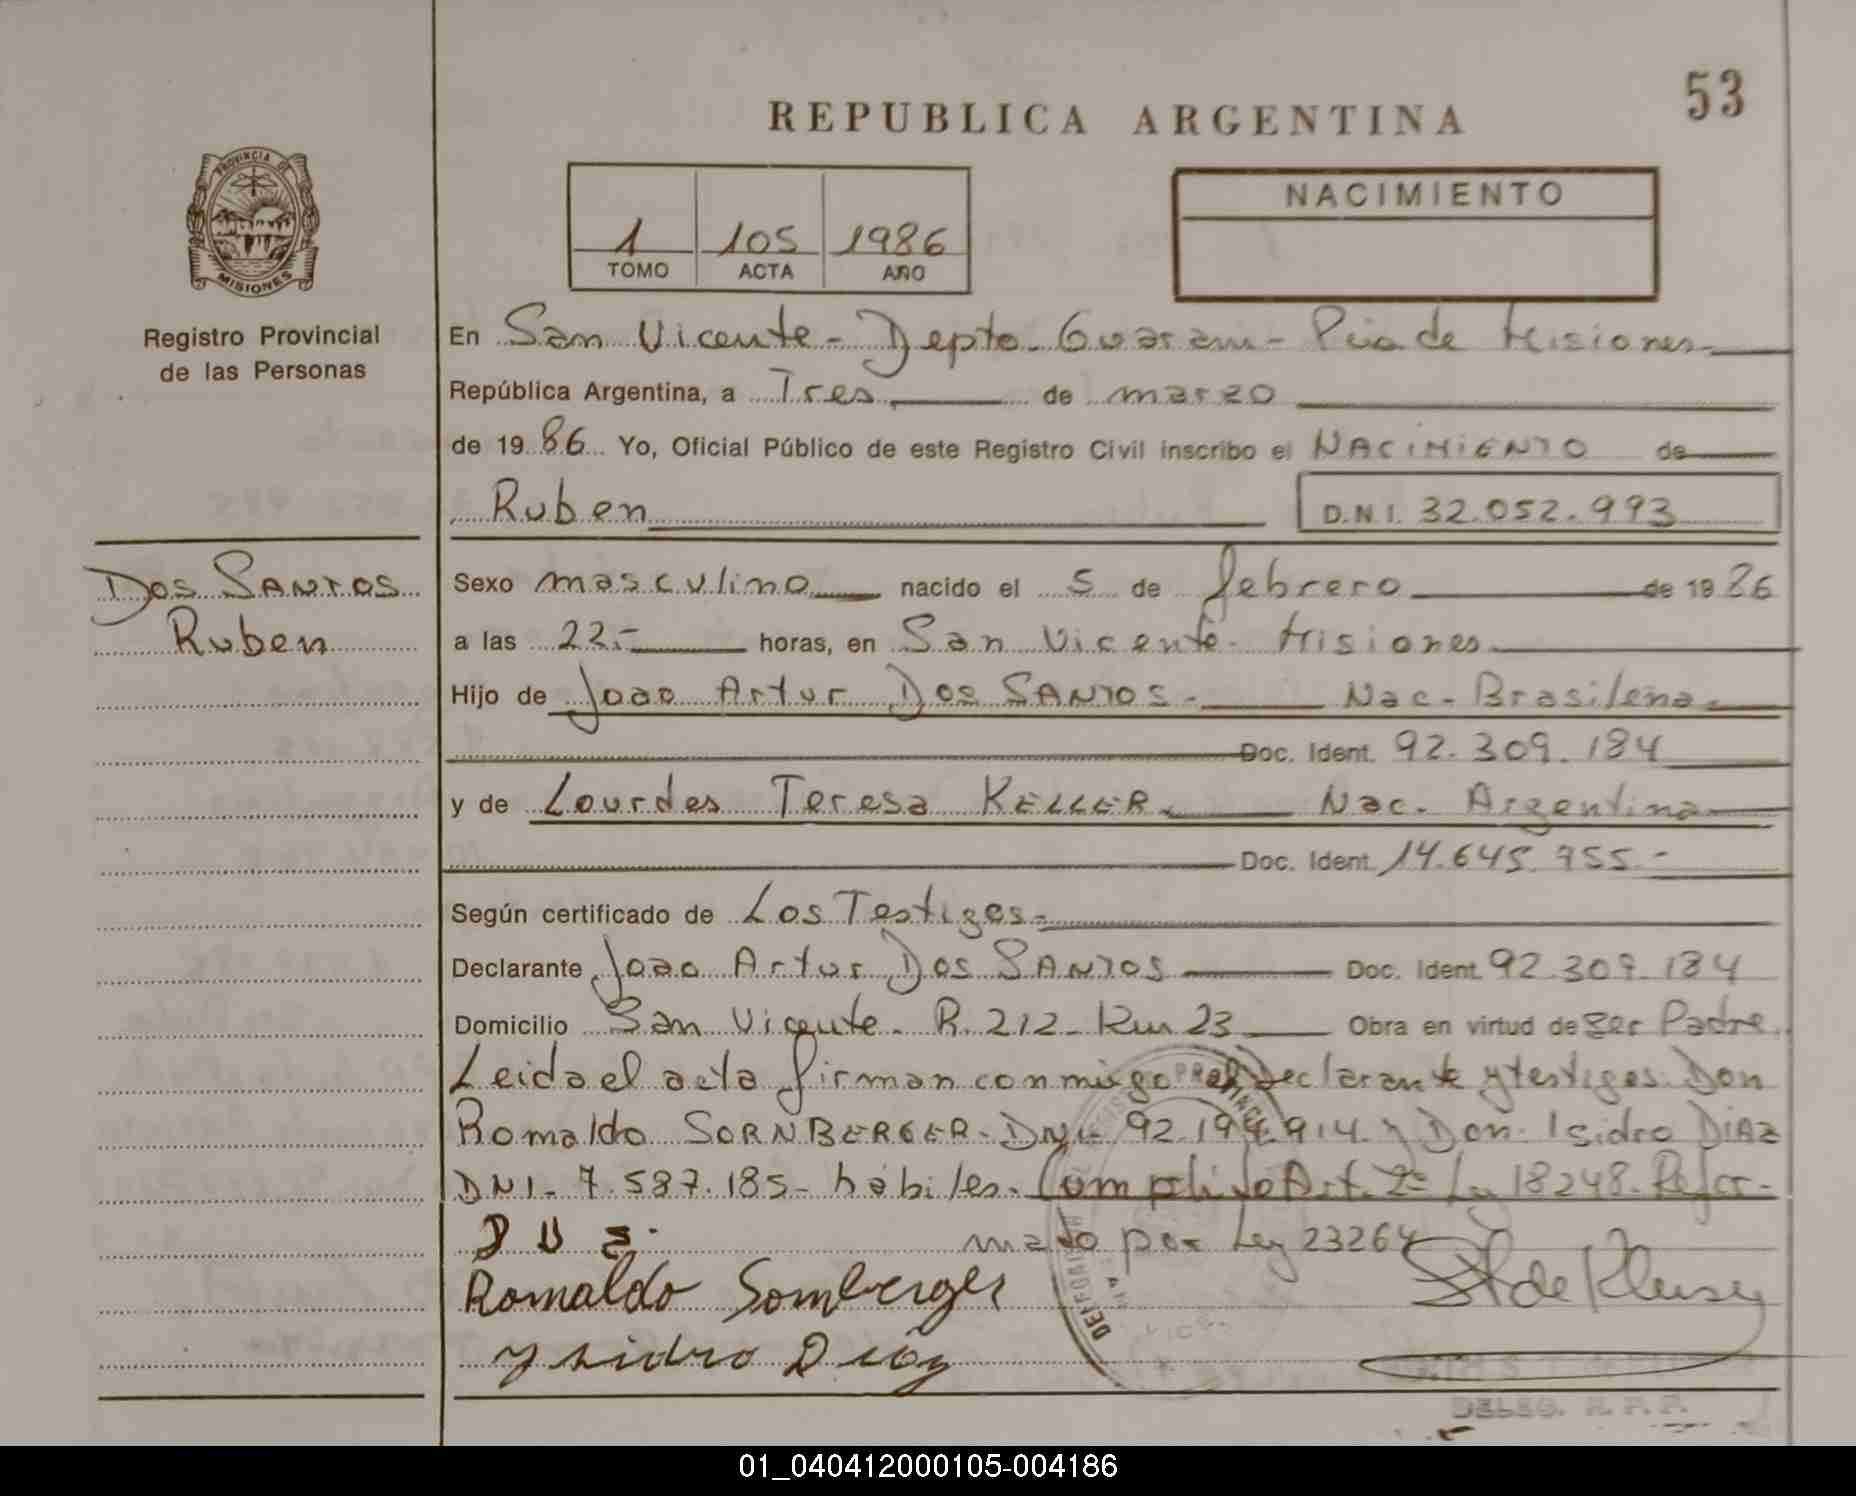 53
REPUBLICA ARGENTINA
PROVINCIA DE
MISIONES
Registro Provincial
de las Personas
1 105 1986
TOMO ACTA AÑO
NACIMIENTO
En San Vicente - Depto. Guarani - Pcia de Misiones.
República Argentina, a Tres de marzo
de 1986 Yo, Oficial Público de este Registro Civil inscribo el NACIMIENTO de
Ruben D.N.I. 32.052.993
Dos SANTOS
Ruben
Sexo masculino nacido el 5 de febrero de 1986
a las 22.- horas, en San Vicente - Misiones
Hijo de Joao Artur Dos SANTOS - Nac - Brasileña
Doc. Ident. 92.309.184
y de Lourdes Teresa KELLER Nac. Argentina
Doc. Ident. 14.645.755.-
Según certificado de Los Testigos -
Declarante Joao Artur Dos SANTOS Doc. Ident. 92.309.184
Domicilio San Vicente - R. 212 - Km 23 Obra en virtud de ser Padre
Leida el acta firman conmigo el declarante y testigos Don
Romaldo SORNBERGER - DNI - 92.194.914 y Don Isidro DIAZ
DNI - 7.587.185 - hábiles. Cumplido Art. 2º Ley 18248. Refor-
mado por Ley 23264
Romaldo Sornberger
Ysidro Díaz
DELEG. R. P. P.
01_040412000105-004186